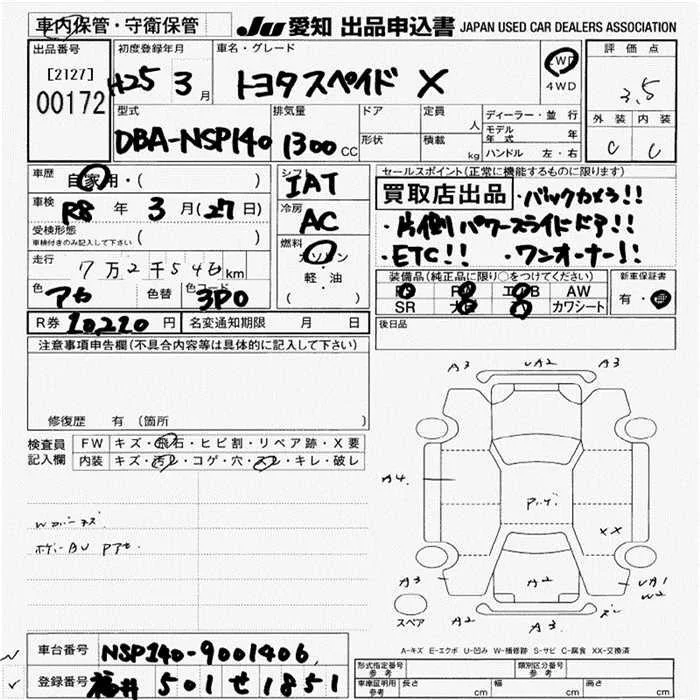 車内保管・守衛保管
JU 愛知 出品申込書 JAPAN USED CAR DEALERS ASSOCIATION
出品番号
[2127]
00172
初度登録年月
H25 3月
車名・グレード
トヨタスペイド X
2WD
4WD
評価点
3.5
外装 内装
C C
型式
DBA-NSP140
排気量
1300 CC
ドア
形状
定員 人
積載 kg
ディーラー・並行
モデル年式 年
ハンドル 左・右
車歴 自家用・( )
車検 R8年 3月(27日)
受検形態
車検付きのみ記入して下さい ( )
走行 7万2千54 km
色 アカ 色替 色コード 3P0
R券 10,210 円
名変通知期限 月 日
シフト
IAT
冷房
AC
燃料
ガソリン
・
軽・油
( )
セールスポイント(正常に機能するものに限ります)
買取店出品 ・バックカメラ!!
・片側パワースライドドア!!
・ETC!! ・ワンオーナー!!
装備品(純正品に限り○をつけてください)
AW
SR カワシート
新車保証書
有・
後日品
注意事項申告欄(不具合内容等は具体的に記入して下さい)
修復歴 有(箇所
検査員
記入欄
FW キズ・飛石・ヒビ割・リペア跡・X要
内装 キズ・汚レ・コゲ・穴・スレ・キレ・破レ
A3 UA2 A3
A4
XX
A3 A2 UA1
W2
A2 A3
スペア
A-キズ E-エクボ U-凹み W-補修跡 S-サビ C-腐食 XX-交換済
車台番号 NSP140-9001406
登録番号 福井 501 せ 1851
形式指定番号
参考
類別区分番号
参考
車庫証明用
参考
長さ cm
幅 cm
高さ cm